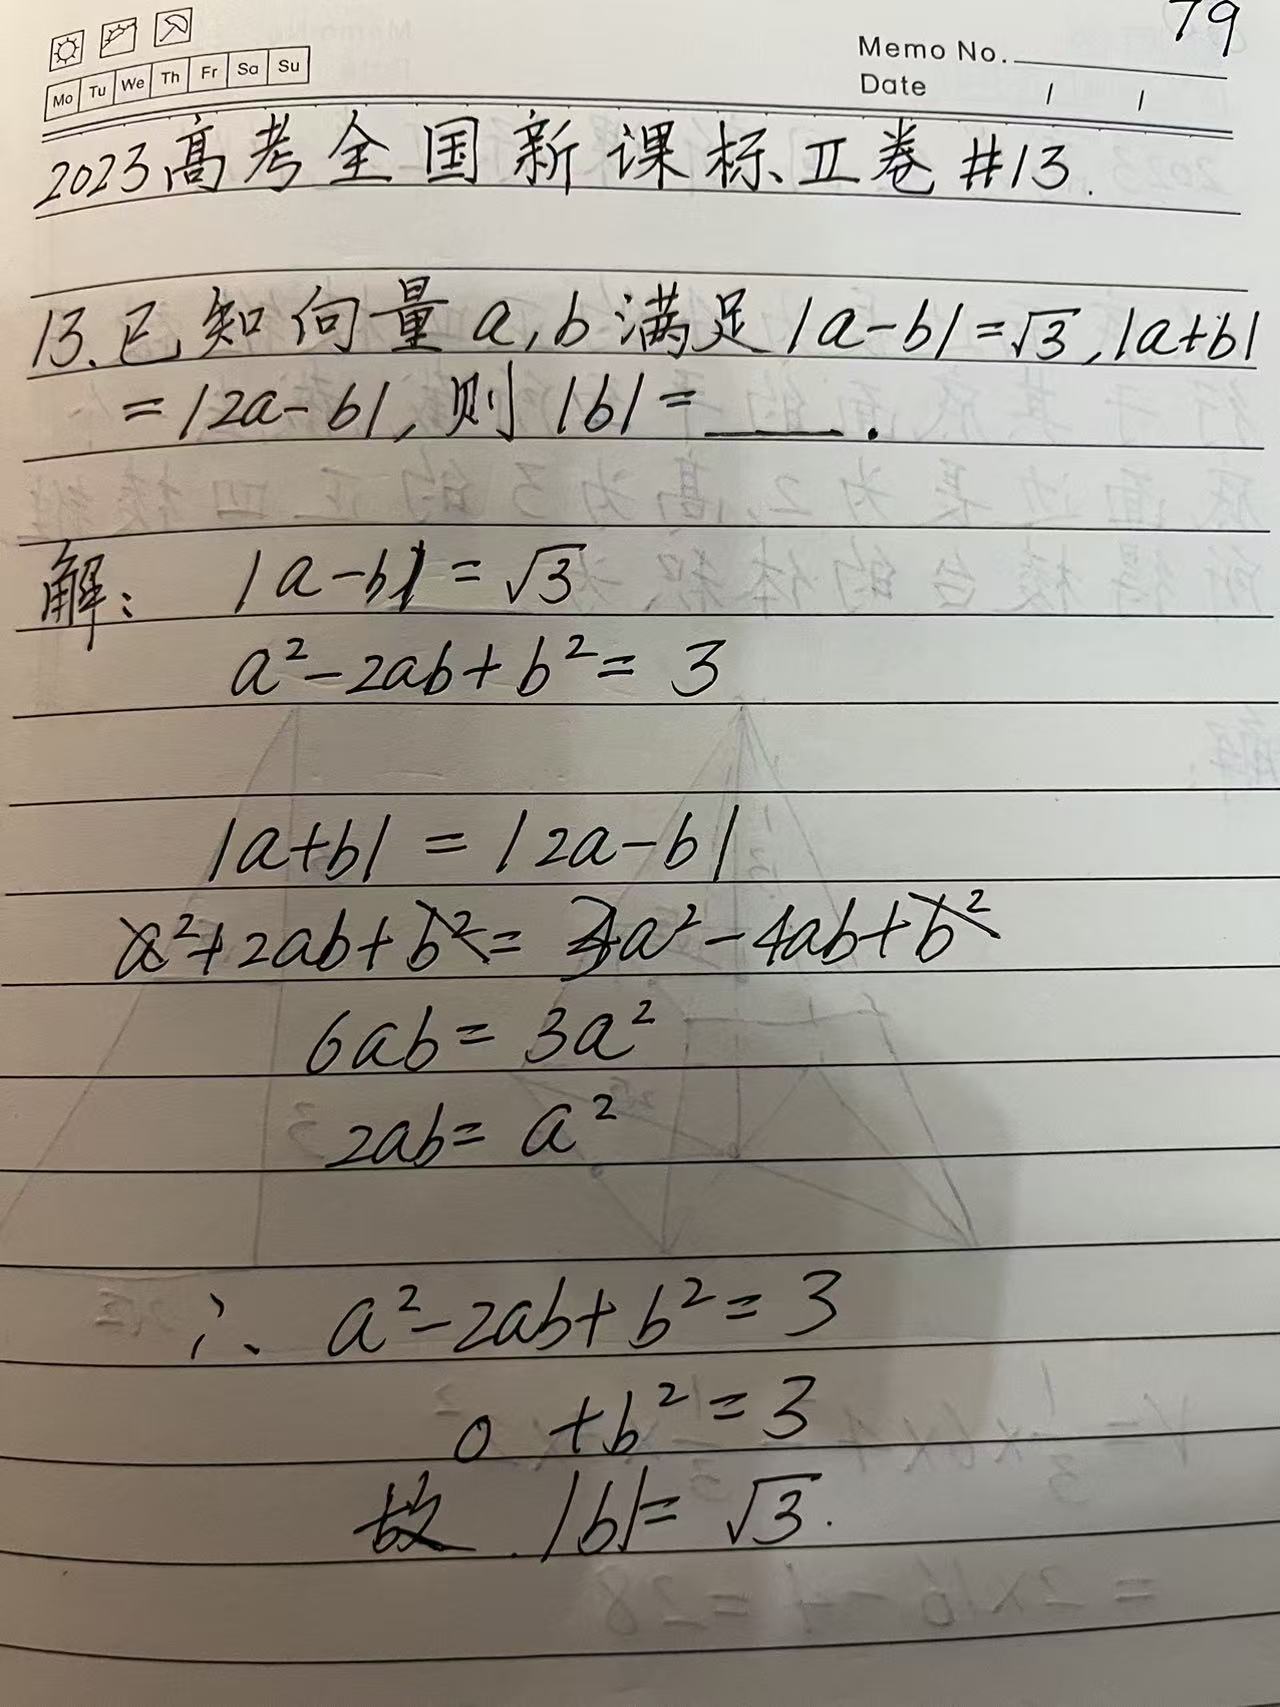 79
Memo No.
Mo Tu We Th Fr Sa Su
Date / /
2023高考全国新课标Ⅱ卷#13.
13.已知向量a,b满足|a-b|=√3,|a+b|
=|2a-b|,则|b|=____.
解: |a-b|=√3
a²-2ab+b²=3
|a+b|=|2a-b|
a²+2ab+b²=4a²-4ab+b²
6ab=3a²
2ab=a²
∴ a²-2ab+b²=3
0 +b²=3
故 |b|=√3.